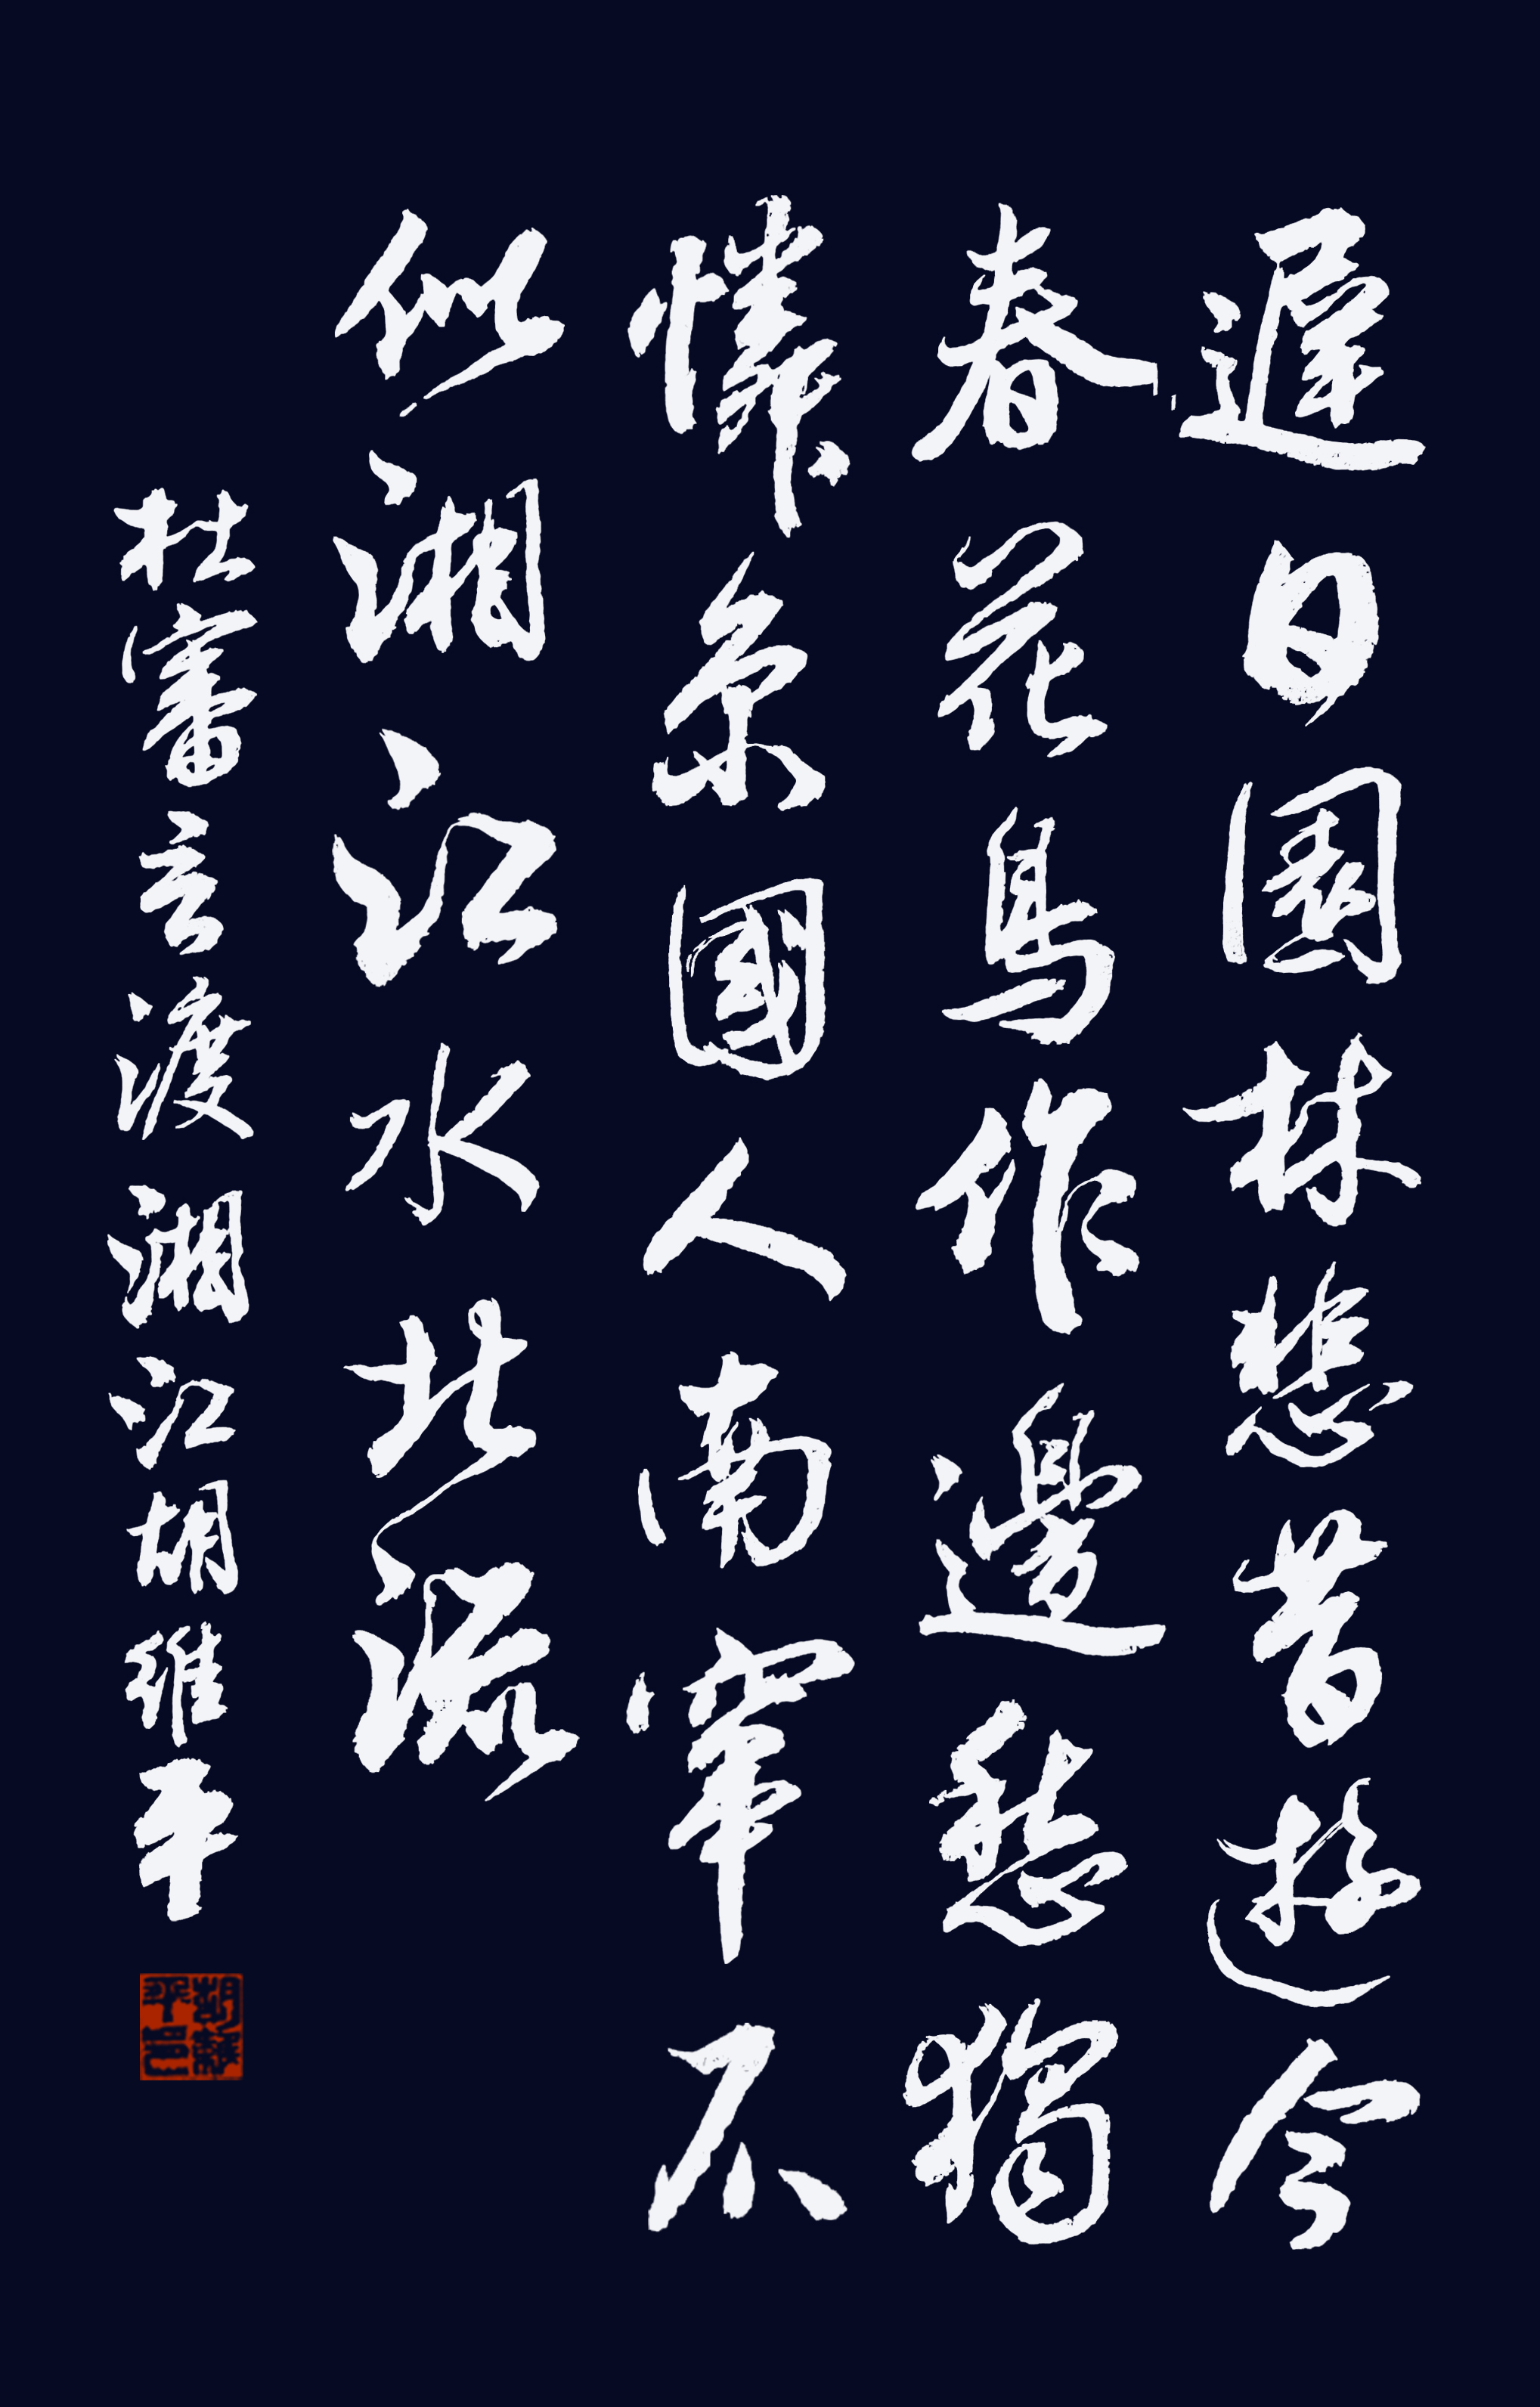 遲日園林悲昔遊今
春花鳥作邊愁獨
憐京國人南竄不
似湘江水北流
杜審言渡湘江胡維平
胡維平印